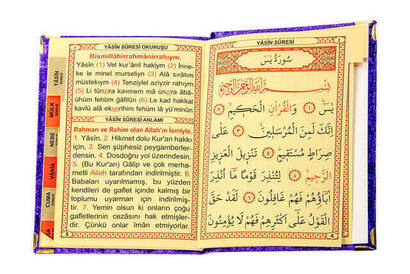 YÂSİN
MÜLK
NEBE
VÂKIA
CUMA
YÂSÎN SÛRESİ OKUNUŞU
Bismillâhirrahmânirrahıym.
Yâsîn (1) Vel kur'ânil hakiym (2) İnne-
ke le minel murseliyn (3) Alâ sırâtım
müstekıym (4) Tenziylel aziyzir rahıym
(5) Li tünzira kavmem mâ ünzira âbâ-
ühüm fehüm ğâfilûn (6) Le kad hakkal
kavlü alâ ekserihim fehüm lâ yü'minûn
YÂSÎN SÛRESİ ANLAMI
Rahman ve Rahim olan Allah'ın İsmiyle.
1. Yâsîn. 2. Hikmet dolu Kur'an hakkı
için, 3. Sen şüphesiz peygamberler-
densin. 4. Dosdoğru yol üzerindesin.
5. (Bu Kur'an) Gâlip ve çok merha-
metli Allah tarafından indirilmiştir. 6.
Babaları uyarılmamış, bu yüzden
kendileri de gaflet içinde kalmış bir
toplumu uyarman için indirilmiş-
tir. 7. Yemin olsun ki onların çoğu
gafletlerinin cezasını hak etmişler-
dir. Çünkü onlar iman etmiyorlar.
YÂSÎN SÛRESİ
سُورَةُ يٰسٓ
بِسْمِ اللّٰهِ الرَّحْمٰنِ الرَّحِيمِ
يٰسٓ ﴿١﴾ وَالْقُرْاٰنِ الْحَكِيمِ ﴿٢﴾
اِنَّكَ لَمِنَ الْمُرْسَلِينَ ﴿٣﴾ عَلٰى
صِرَاطٍ مُسْتَقِيمٍ ﴿٤﴾ تَنْزِيلَ الْعَزِيزِ
الرَّحِيمِ ﴿٥﴾ لِتُنْذِرَ قَوْمًا مَٓا اُنْذِرَ
اٰبَٓاؤُهُمْ فَهُمْ غَافِلُونَ ﴿٦﴾ لَقَدْ حَقَّ
الْقَوْلُ عَلٰٓى اَكْثَرِهِمْ فَهُمْ لَا يُؤْمِنُونَ